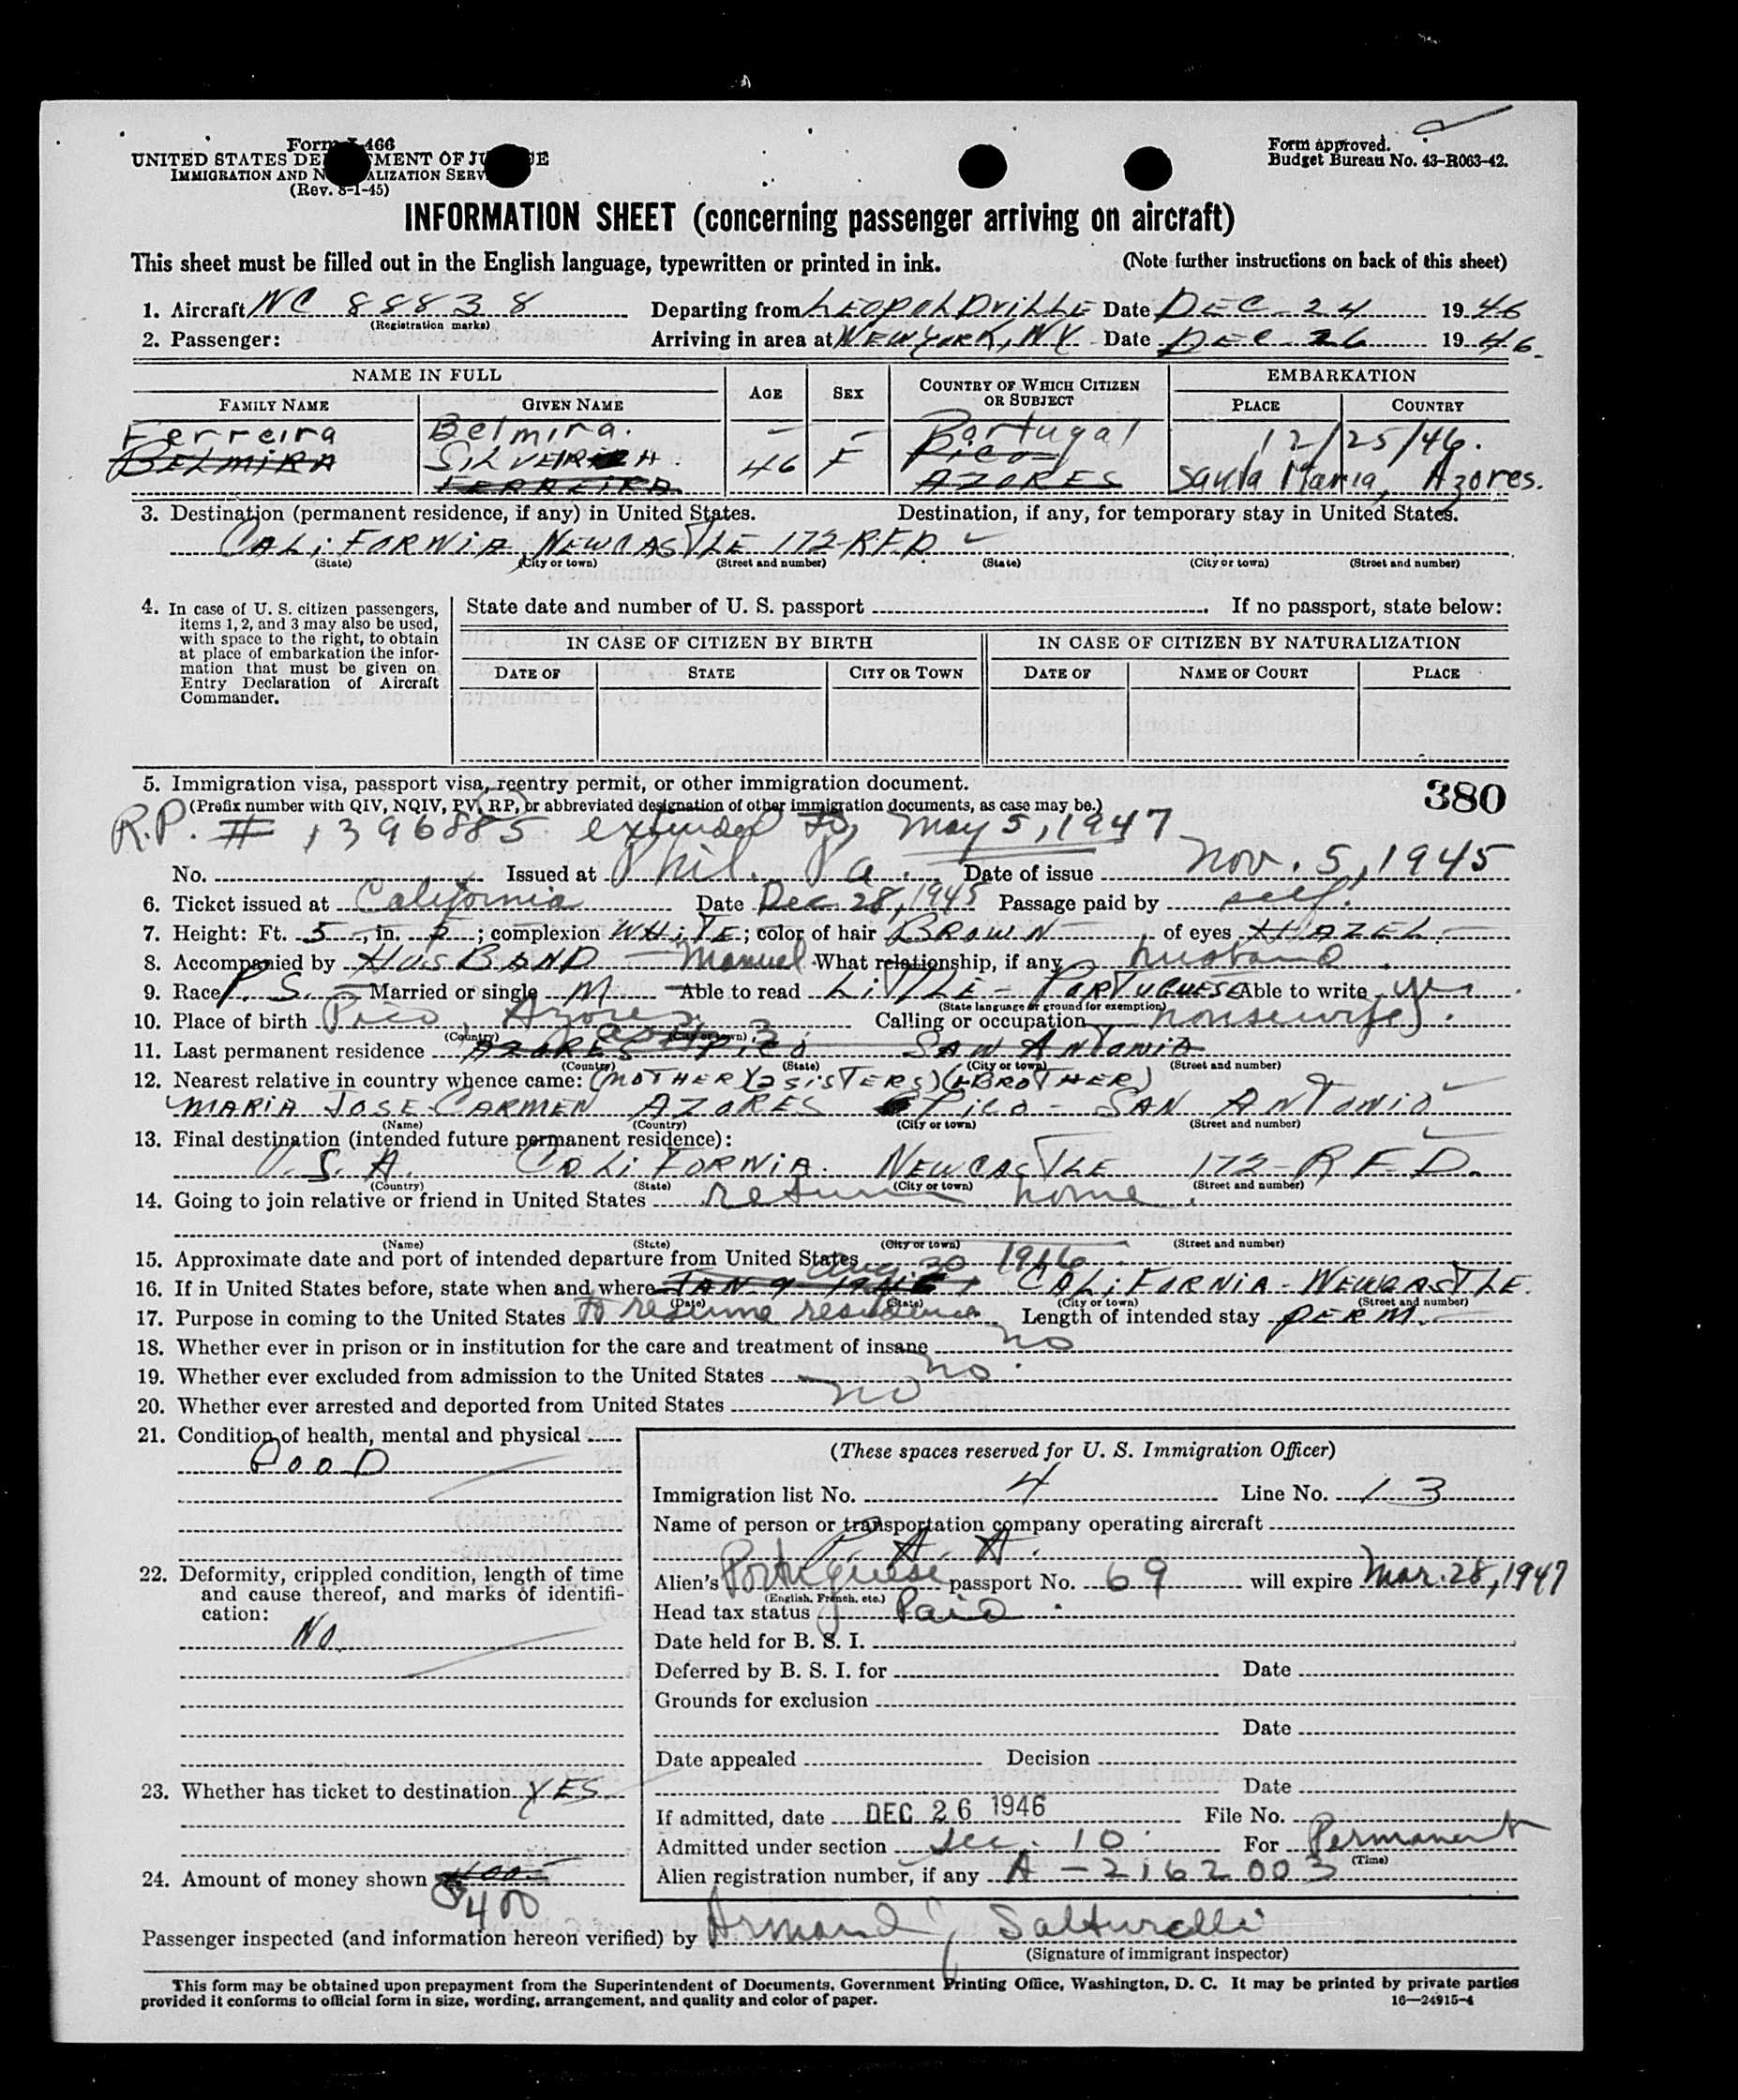 Form I-466
UNITED STATES DEPARTMENT OF JUSTICE
IMMIGRATION AND NATURALIZATION SERVICE
(Rev. 8-1-45)
Form approved.
Budget Bureau No. 43-R063-42.
INFORMATION SHEET (concerning passenger arriving on aircraft)
This sheet must be filled out in the English language, typewritten or printed in ink. (Note further instructions on back of this sheet)
1. Aircraft NC 88838 Departing from LEOPOLDVILLE Date DEC 24 1946
(Registration marks)
2. Passenger: Arriving in area at NEW YORK, NY Date DEC 26 1946.
NAME IN FULL AGE SEX COUNTRY OF WHICH CITIZEN OR SUBJECT EMBARKATION
FAMILY NAME GIVEN NAME PLACE COUNTRY
Ferreira Belmira. — — Portugal 12/25/46.
BELMIRA SILVEIRA 46 F PICO Santa Maria, Azores.
FERREIRA AZORES
3. Destination (permanent residence, if any) in United States. Destination, if any, for temporary stay in United States.
CALIFORNIA, NEWCASTLE 172-RFD
(State) (City or town) (Street and number) (State) (City or town) (Street and number)
4. In case of U. S. citizen passengers, items 1, 2, and 3 may also be used, with space to the right, to obtain at place of embarkation the information that must be given on Entry Declaration of Aircraft Commander.
State date and number of U. S. passport . If no passport, state below:
IN CASE OF CITIZEN BY BIRTH IN CASE OF CITIZEN BY NATURALIZATION
DATE OF STATE CITY OR TOWN DATE OF NAME OF COURT PLACE
5. Immigration visa, passport visa, reentry permit, or other immigration document.
(Prefix number with QIV, NQIV, PV, RP, or abbreviated designation of other immigration documents, as case may be.) 380
R.P. # 1396885 extended to May 5, 1947
No. Issued at Phil. Pa. Date of issue Nov. 5, 1945
6. Ticket issued at California Date Dec 28, 1945 Passage paid by self.
7. Height: Ft. 5, in. 5; complexion WHITE; color of hair BROWN of eyes HAZEL.
8. Accompanied by HUSBAND — Manuel What relationship, if any husband.
9. Race P. S. Married or single M Able to read LITTLE - PORTUGUESE Able to write yes
(State language or ground for exemption)
10. Place of birth Pico, Azores Calling or occupation housewife.
(Country) (City or town)
11. Last permanent residence AZORES PICO SAN ANTONIO
(Country) (State) (City or town) (Street and number)
12. Nearest relative in country whence came: (MOTHER) (2 SISTERS) (1 BROTHER)
MARIA JOSE CARMEN AZORES PICO - SAN ANTONIO
(Name) (Country) (City or town) (Street and number)
13. Final destination (intended future permanent residence):
U.S.A. CALIFORNIA. NEWCASTLE 172-RFD.
(Country) (State) (City or town) (Street and number)
14. Going to join relative or friend in United States return home.
(Name) (State) (City or town) (Street and number)
15. Approximate date and port of intended departure from United States
Aug. 30 1946
16. If in United States before, state when and where JAN 9 1946, CALIFORNIA - NEWCASTLE.
(Date) (State) (City or town) (Street and number)
17. Purpose in coming to the United States to resume residence Length of intended stay PERM.
18. Whether ever in prison or in institution for the care and treatment of insane no
19. Whether ever excluded from admission to the United States no.
20. Whether ever arrested and deported from United States no
21. Condition of health, mental and physical
GOOD
22. Deformity, crippled condition, length of time and cause thereof, and marks of identification:
NO.
23. Whether has ticket to destination YES
24. Amount of money shown 400
$400
(These spaces reserved for U. S. Immigration Officer)
Immigration list No. 4 Line No. 13
Name of person or transportation company operating aircraft
P. A. A.
Alien's Portuguese passport No. 69 will expire Mar. 28, 1947
(English, French, etc.)
Head tax status Paid.
Date held for B. S. I.
Deferred by B. S. I. for Date
Grounds for exclusion
Date
Date appealed Decision
Date
If admitted, date DEC 26 1946 File No.
Admitted under section Sec. 10. For Permanent
(Time)
Alien registration number, if any A-2162003
Passenger inspected (and information hereon verified) by Armand Salturelli
(Signature of immigrant inspector)
This form may be obtained upon prepayment from the Superintendent of Documents, Government Printing Office, Washington, D. C. It may be printed by private parties
provided it conforms to official form in size, wording, arrangement, and quality and color of paper. 16—24915-4